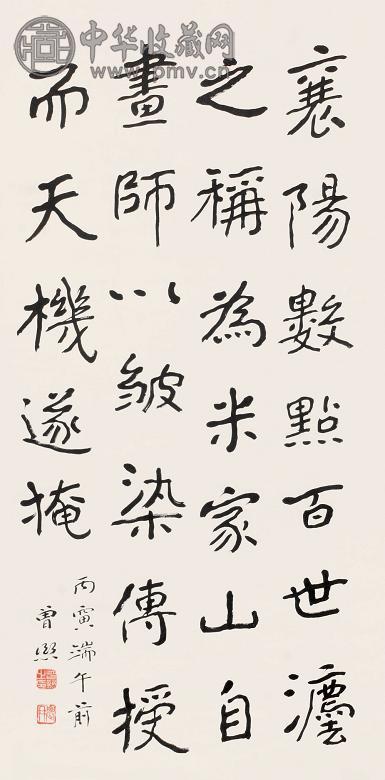 中华收藏网
www.pmv.cn
襄陽數點百世灋
之稱為米家山自
畫師以皴染傳授
而天機遂掩
丙寅端午前
曾熙